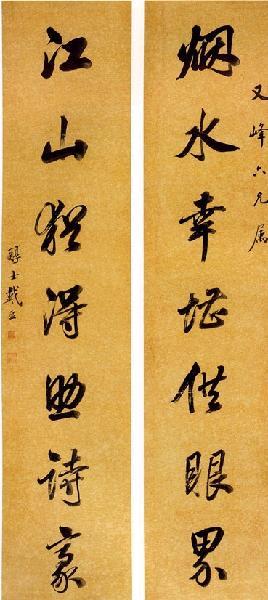 又峰六兄属
烟水幸堪供眼界
江山猶得助诗豪
醇士戴熙